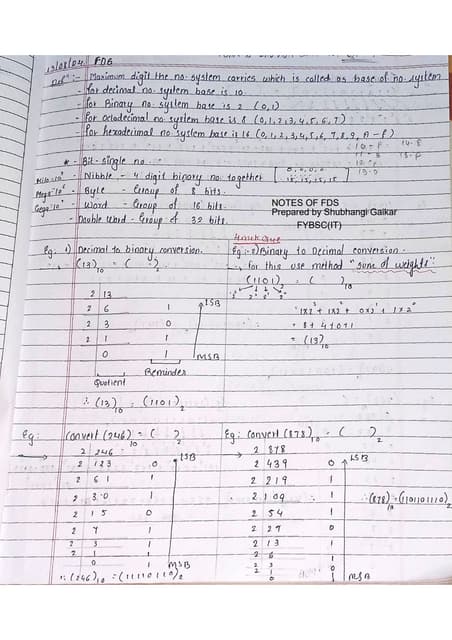 13/08/24 FDS
Defn :- Maximum digit the no. system carries which is called as base of no. system
- for decimal no. system base is 10.
- for Binary no. system base is 2 (0,1)
- For octadecimal no system base is 8 (0,1,2,3,4,5,6,7)
for hexadecimal no system base is 16 (0,1,2,3,4,5,6,7,8,9, A-F)
* - Bit - single no.
Nibble - 4 digit binary no. together
Byte - Group of 8 bits.
Word - Group of 16 bits.
Double Word - Group of 32 bits.
NOTES OF FDS
Prepared by Shubhangi Gaikar
FYBSC(IT)
Eg: 1) Decimal to binary conversion.
(13)10 = ( )2
2 13
2 6 1 LSB
2 3 0
2 1 1
0 1 MSB
Quotient Reminder
∴ (13)10 = (1101)2
Eg:- 2) Binary to Decimal conversion
for this use method "sum of weights"
(1101)2 = ( )10
1x2³ + 1x2² + 0x2¹ + 1x2⁰
= 8+4+0+1
= (13)10
Eg: Convert (246)10 = ( )2
2 246
2 123 0 LSB
2 61 1
2 30 1
2 15 0
2 7 1
2 3 1
2 1 1
0 1 MSB
∴ (246)10 = (11110110)2
Eg: Convert (878)10 = ( )2
2 878
2 439 0 LSB
2 219 1
2 109 1
2 54 1
2 27 0
2 13 1
2 6 1
2 3 0
2 1 1
0 1 MSB
∴ (878)10 = (1101101110)2